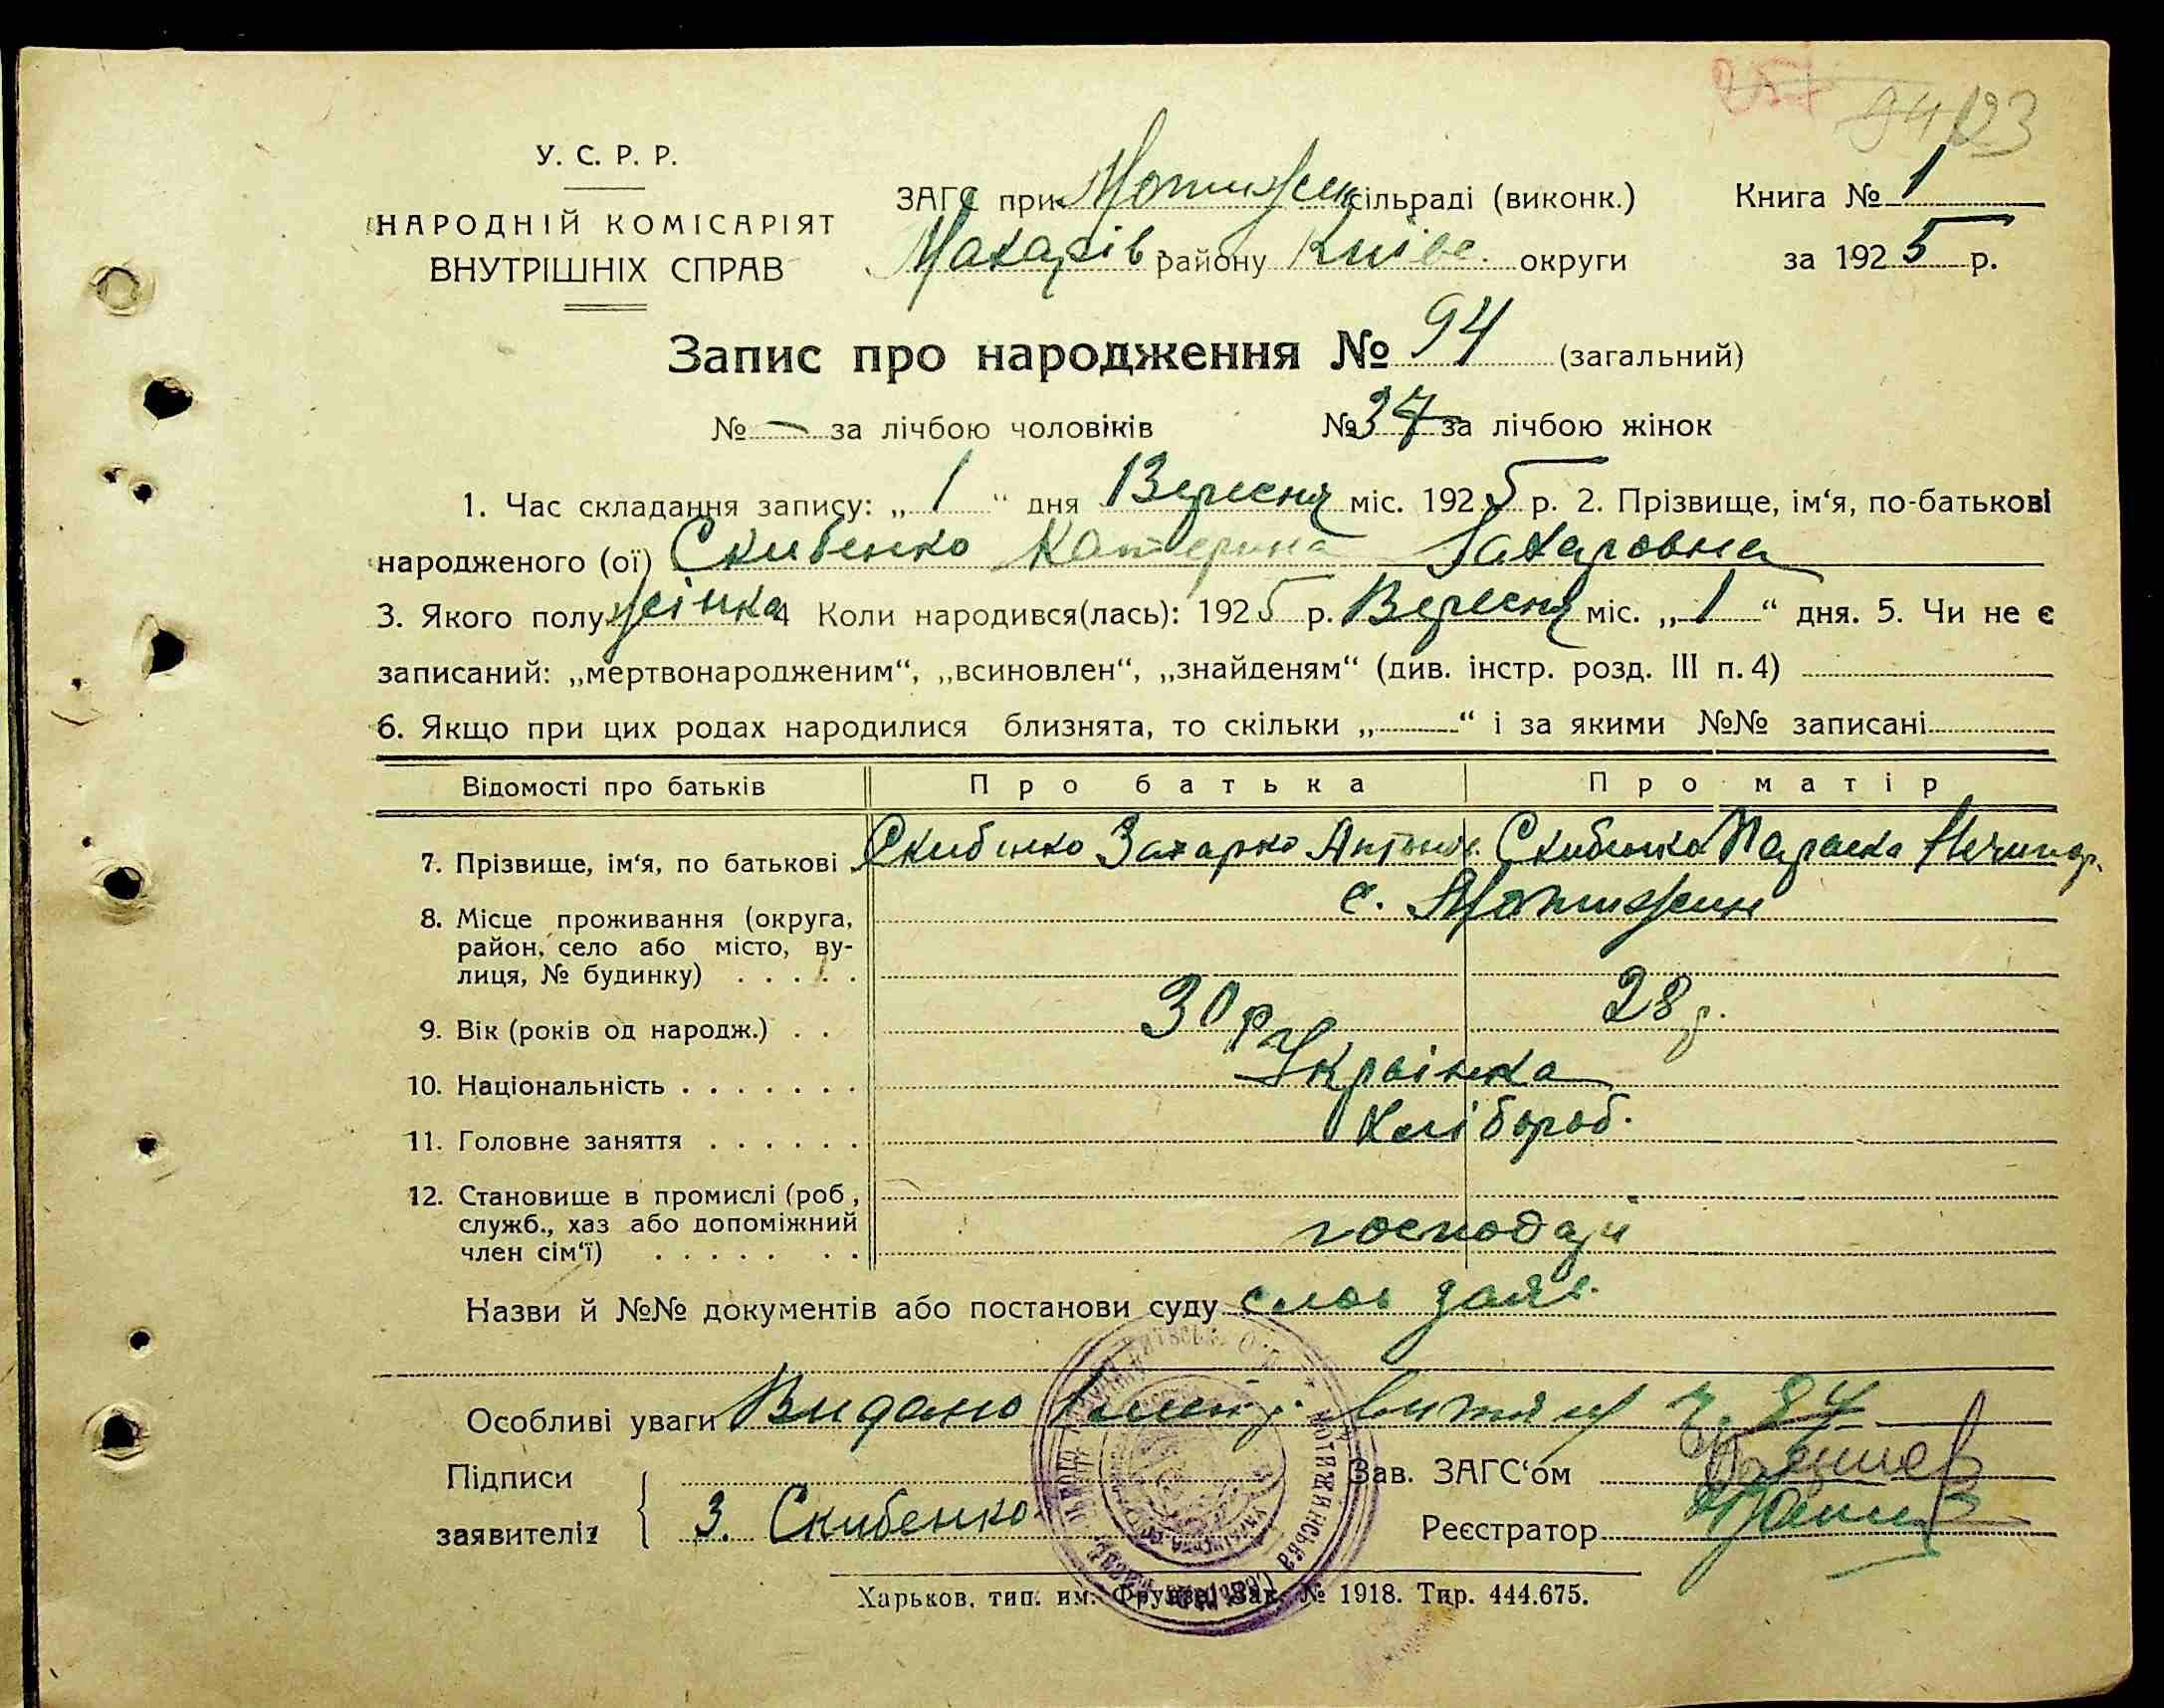 94 123
У. С. Р. Р.
НАРОДНІЙ КОМІСАРІЯТ
ВНУТРІШНІХ СПРАВ
ЗАГС при Мотижин сільраді (виконк.)
Макарів району Київс. округи
Книга № 1
за 1925 р.
Запис про народження № 94 (загальний)
№ — за лічбою чоловіків № 37 за лічбою жінок
1. Час складання запису: „1“ дня Вересня міс. 1925 р. 2. Прізвище, ім‘я, по-батькові
народженого (ої) Скибенко Катерина Захаровна
3. Якого полу жінка 4 Коли народився(лась): 1925 р. Вересня міс. „1“ дня. 5. Чи не є
записаний: „мертвонародженим“, „всиновлен“, „знайденям“ (див. інстр. розд. III п. 4)
6. Якщо при цих родах народилися близнята, то скільки „ “ і за якими №№ записані
Відомості про батьків Про батька Про матір
7. Прізвище, ім‘я, по батькові Скибенко Захарко Антонів. Скибенко Параска
8. Місце проживання (округа, с. Мотижин
район, село або місто, ву-
лиця, № будинку)
9. Вік (років од народж.) 30 р 28 р.
10. Національність Украінка
11. Головне заняття Хлібороб.
12. Становище в промислі (роб,
служб., хаз або допоміжний господарі
член сім‘ї)
Назви й №№ документів або постанови суду слов заяв.
Особливі уваги Видано витяг ч. 84
Підписи
заявителів З. Скибенко
Зав. ЗАГС‘ом
Реєстратор
Харьков, тип. им. Фрунзе. Зак. № 1918. Тир. 444.675.